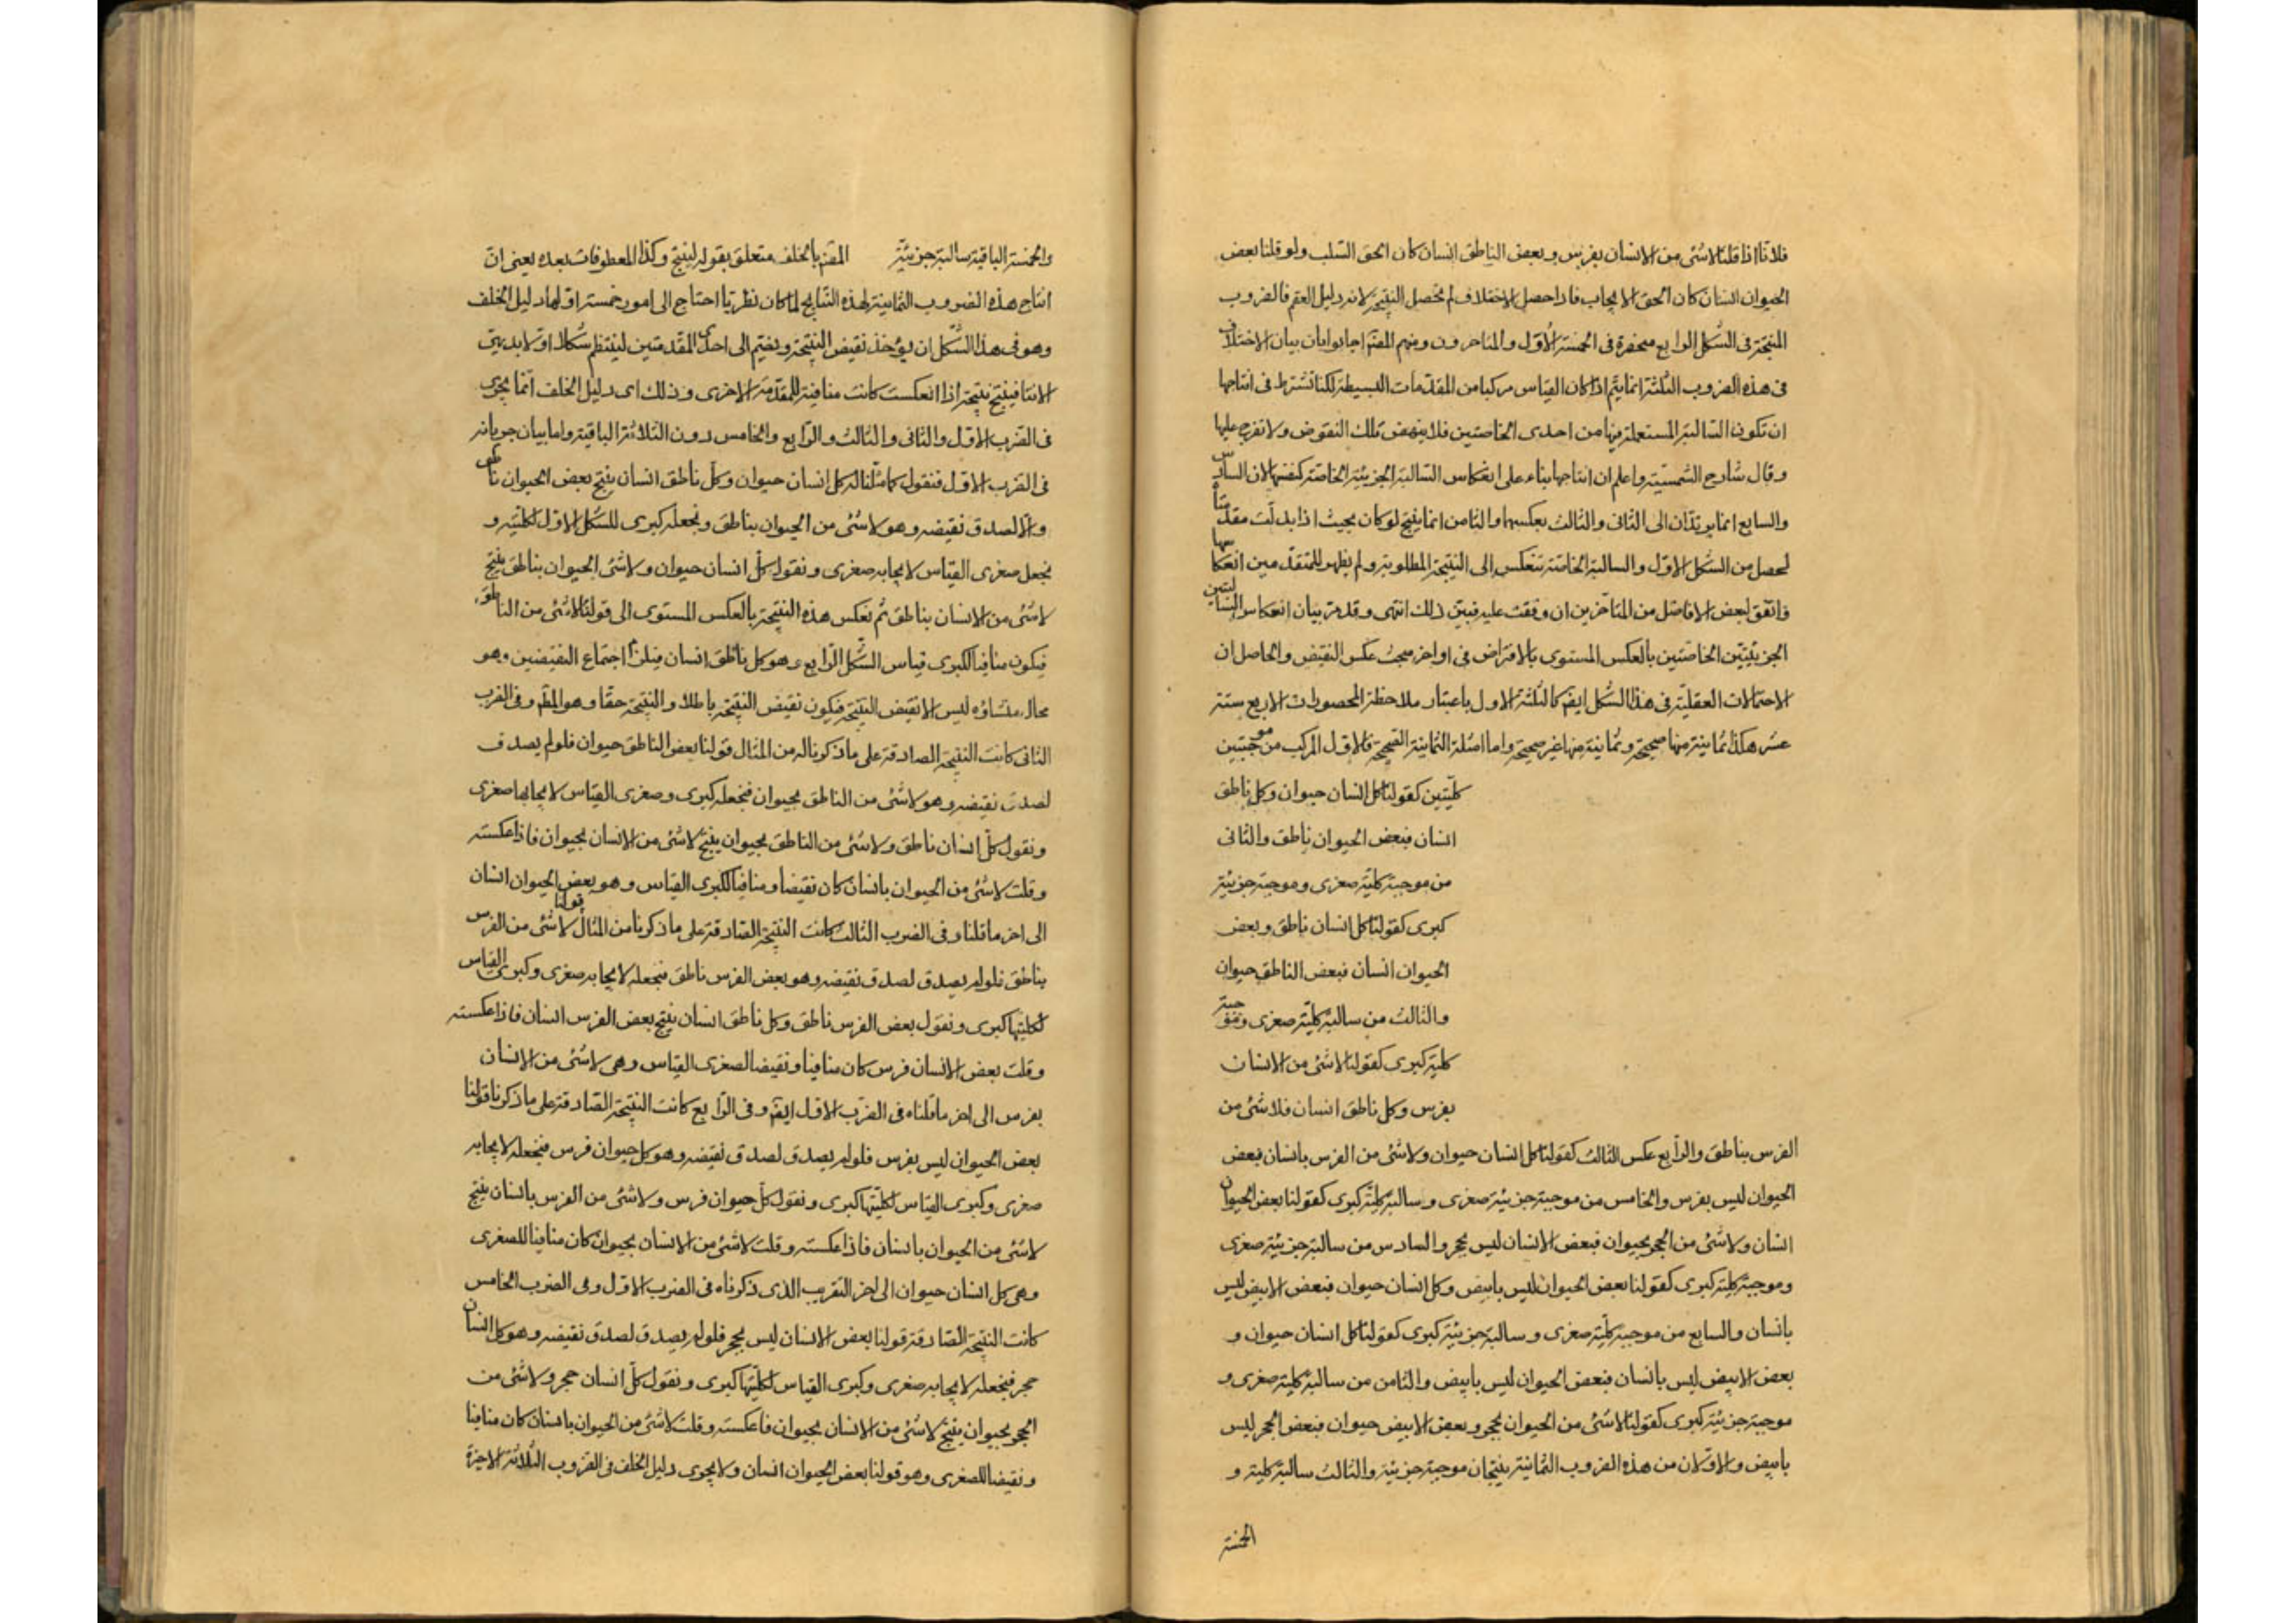 فلانا اذا قلنا لاشئ من الانسان بفرس وبعض الناطق انسان كان الحق السلب ولو قلنا بعض
الحيوان انسان كان الحق الايجاب فاذا حصل الاختلاف لم تحصل النتيجة لانه دليل العقم فالضروب
المنتجة فى الشكل الرابع منحصرة فى الخمسة الأول والمتاخرون ومنهم المصنف اجابوا بان بيان الاختلاف
فى هذه الضروب الثلثة انما يتم اذا كان القياس مركبا من المقدمات البسيطة لكنا نشترط فى انتاجها
ان تكون السالبة المستعملة فيها من احدى الخاصتين فلا ينهض تلك النقوض ولا تفرج عليها
وقال شارح الشمسية واعلم ان انتاجها بناء على انعكاس السالبة الجزئية الخاصة كنفسها لان السادس
والسابع انما يرتدان الى الثانى والثالث بعكسها والثامن انما ينتج لو كان بحيث اذا بدلت مقدمتاه
لحصل من الشكل الاول والسالبة الخاصة تنعكس الى النتيجة المطلوبة ولم يظهر للمتقدمين انعكاسها
فاتفق لبعض الافاضل من المتأخرين ان وقفت عليه فبين ذلك انتهى وقد مر بيان انعكاس السالبتين
الجزئيتين الخاصتين بالعكس المستوى بالافتراض فى اواخر مبحث عكس النقيض والحاصل ان
الاحتمالات العقلية فى هذا الشكل ايضا كالثلثة الاول باعتبار ملاحظة المحصورات الاربع ستة
عشر هكذا ثمانية منها صحيحة وثمانية منها غير صحيحة واما امثلة الثمانية الصحيحة فالاول المركب من موجبتين
كليتين كقولنا كل انسان حيوان وكل ناطق
انسان فبعض الحيوان ناطق والثانى
من موجبة كلية صغرى وموجبة جزئية
كبرى كقولنا كل انسان ناطق وبعض
الحيوان انسان فبعض الناطق حيوان
والثالث من سالبة كلية صغرى وموجبة
كلية كبرى كقولنا لاشئ من الانسان
بفرس وكل ناطق انسان فلا شئ من
الفرس بناطق والرابع عكس الثالث كقولنا كل انسان حيوان ولاشئ من الفرس بانسان فبعض
الحيوان ليس بفرس والخامس من موجبة جزئية صغرى وسالبة كلية كبرى كقولنا بعض الحيوان
انسان ولاشئ من الحجر بحيوان فبعض الانسان ليس بحجر والسادس من سالبة جزئية صغرى
وموجبة كلية كبرى كقولنا بعض الحيوان ليس بابيض وكل انسان حيوان فبعض الابيض ليس
بانسان والسابع من موجبة كلية صغرى وسالبة جزئية كبرى كقولنا كل انسان حيوان و
بعض الابيض ليس بانسان فبعض الحيوان ليس بابيض والثامن من سالبة كلية صغرى و
موجبة جزئية كبرى كقولنا لاشئ من الحيوان بحجر وبعض الابيض حيوان فبعض الحجر ليس
بابيض والاولان من هذه الضروب الثمانية ينتجان موجبة جزئية والثالث سالبة كلية و
الخمسة
والخمسة الباقية سالبة جزئية المصنف بالخلف متعلق بقوله لينتج وكذا المعطوفات بعده يعنى ان
انتاج هذه الضروب الثمانية لهذه النتايج لما كان نظريا احتاج الى امور خمسة اولها دليل الخلف
وهو فى هذا الشكل ان يؤخذ نقيض النتيجة ويضم الى احدى المقدمتين لينتظم شكلا اولا بديهى
الانتاج فينتج نتيجة اذا انعكست كانت منافية للمقدمة الاخرى وذلك اى دليل الخلف انما يجرى
فى الضرب الاول والثانى والثالث والرابع والخامس دون الثلاثة الباقية واما بيان جريانه
فى الضرب الاول فنقول كما مثلنا له كل انسان حيوان وكل ناطق انسان ينتج بعض الحيوان ناطق
والا لصدق نقيضه وهو لاشئ من الحيوان بناطق ونجعله كبرى للشكل الاول لكليته و
نجعل صغرى القياس لايجابه صغرى ونقول كل انسان حيوان ولاشئ الحيوان بناطق ينتج
لاشئ من الانسان بناطق ثم نعكس هذه النتيجة بالعكس المستوى الى قولنا لاشئ من الناطق
فيكون منافيا لكبرى قياس الشكل الرابع وهو كل ناطق انسان فيلزم اجتماع النقيضين وهو
محال منشاؤه ليس الا نقيض النتيجة فيكون نقيض النتيجة باطلا والنتيجة حقا وهو المط وفى الضرب
الثانى كانت النتيجة الصادقة على ما ذكرنا له من المثال قولنا بعض الناطق حيوان فلو لم يصدق
لصدق نقيضه وهو لاشئ من الناطق بحيوان فنجعله كبرى وصغرى القياس لايجابها صغرى
ونقول كل انسان ناطق ولاشئ من الناطق بحيوان ينتج لاشئ من الانسان بحيوان فاذا عكسته
وقلت لاشئ من الحيوان بانسان كان نقيضا ومنافيا لكبرى القياس وهو بعض الحيوان انسان
الى اخر ما قلنا وفى الضرب الثالث كانت النتيجة الصادقة على ما ذكرنا من المثال قولنا لاشئ من الفرس
بناطق فلو لم يصدق لصدق نقيضه وهو بعض الفرس ناطق فنجعله لايجابه صغرى وكبرى القياس
لكليتها كبرى ونقول بعض الفرس ناطق وكل ناطق انسان ينتج بعض الفرس انسان فاذا عكسته
وقلت بعض الانسان فرس كان منافيا ونقيضا لصغرى القياس وهى لاشئ من الانسان
بفرس الى اخر ما قلناه فى الضرب الاول ايضا وفى الرابع كانت النتيجة الصادقة على ما ذكرنا قولنا
بعض الحيوان ليس بفرس فلو لم يصدق لصدق نقيضه وهو كل حيوان فرس فنجعله لايجابه
صغرى وكبرى القياس لكليتها كبرى ونقول كل حيوان فرس ولاشئ من الفرس بانسان ينتج
لاشئ من الحيوان بانسان فاذا عكسته وقلت لاشئ من الانسان بحيوان كان منافيا للصغرى
وهى كل انسان حيوان الى اخر التقريب الذى ذكرناه فى الضرب الاول وفى الضرب الخامس
كانت النتيجة الصادقة قولنا بعض الانسان ليس بحجر فلو لم يصدق لصدق نقيضه وهو كل انسان
حجر فنجعله لايجابه صغرى وكبرى القياس لكليتها كبرى ونقول كل انسان حجر ولاشئ من
الحجر بحيوان ينتج لاشئ من الانسان بحيوان فاعكسته وقلت لاشئ من الحيوان بانسان كان منافيا
ونقيضا للصغرى وهو قولنا بعض الحيوان انسان ولا يجرى دليل الخلف فى الضروب الثلاثة الاخيرة